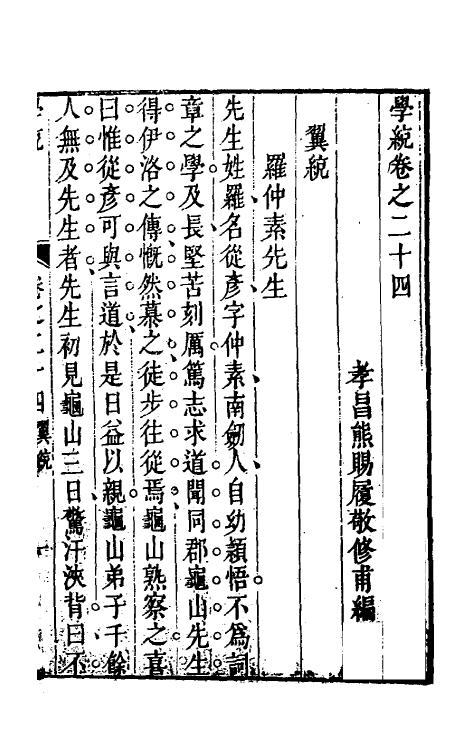 學統卷之二十四
孝昌熊賜履敬修甫編
翼統
羅仲素先生
先生姓羅名從彥字仲素南劒人自幼穎悟不為詞
章之學及長堅苦刻厲篤志求道聞同郡龜山先生
得伊洛之傳慨然慕之徒步往從焉龜山熟察之喜
曰惟從彥可與言道於是日益以親龜山弟子千餘
人無及先生者先生初見龜山三日驚汗浹背曰不
卷之二十四翼統